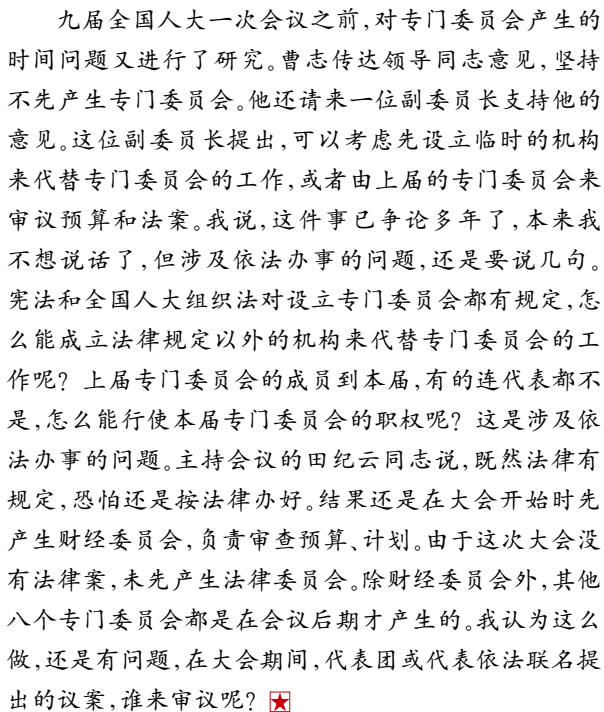 九届全国人大一次会议之前,对专门委员会产生的
时间问题又进行了研究。曹志传达领导同志意见,坚持
不先产生专门委员会。他还请来一位副委员长支持他的
意见。这位副委员长提出,可以考虑先设立临时的机构
来代替专门委员会的工作,或者由上届的专门委员会来
审议预算和法案。我说,这件事已争论多年了,本来我
不想说话了,但涉及依法办事的问题,还是要说几句。
宪法和全国人大组织法对设立专门委员会都有规定,怎
么能成立法律规定以外的机构来代替专门委员会的工
作呢? 上届专门委员会的成员到本届,有的连代表都不
是,怎么能行使本届专门委员会的职权呢? 这是涉及依
法办事的问题。主持会议的田纪云同志说,既然法律有
规定,恐怕还是按法律办好。结果还是在大会开始时先
产生财经委员会,负责审查预算、计划。由于这次大会没
有法律案,未先产生法律委员会。除财经委员会外,其他
八个专门委员会都是在会议后期才产生的。我认为这么
做,还是有问题,在大会期间,代表团或代表依法联名提
出的议案,谁来审议呢?